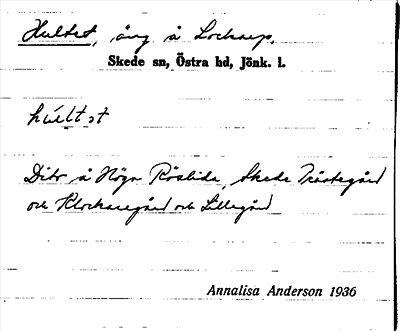 Hultet, äng å Lockarp.
Skede sn, Östra hd, Jönk. l.
húlt ət
Dito å Höga Röslida, Skede Prästegård
och Klockaregård och Lillegård
Annalisa Anderson 1936